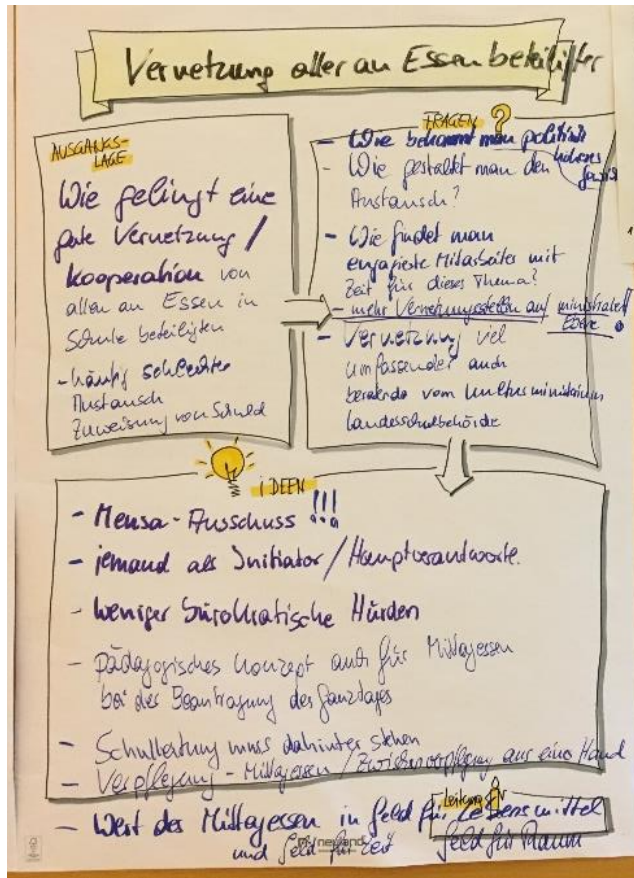 Vernetzung aller an Essen beteiligter
AUSGANGS-
LAGE
Wie gelingt eine
gute Vernetzung /
Kooperation von
allen an Essen in
Schule beteiligten
- häufig schlechter
Austausch
Zuweisung von Schuld
FRAGEN ?
- Wie bekommt man politisch
höheres
- Wie gestaltet man den
Austausch?
- Wie findet man
engagierte Mitarbeiter mit
Zeit für dieses Thema?
- mehr Vernetzungsstellen auf ministerialer
Ebene!
- Vernetzung viel
umfassender auch
beratende vom Kultusministerium
Landesschulbehörde
IDEEN
- Mensa-Ausschuss !!!
- jemand als Initiator / Hauptverantwortl.
- weniger bürokratische Hürden
- pädagogisches Konzept auch für Mittagessen
bei der Beantragung des Ganztages
- Schulleitung muss dahinter stehen
- Verpflegung - Mittagessen / Zwischenverpflegung aus eine Hand
Leitung
- Wert des Mittagessen in Geld für Lebensmittel
und Geld für Zeit Geld für Raum
neuland